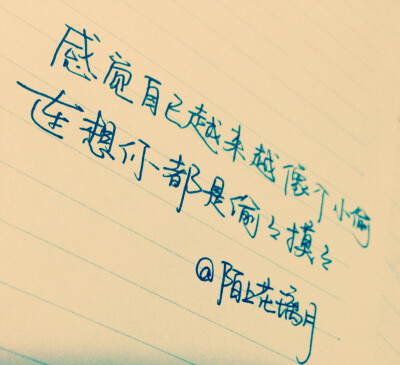 感觉自己越来越像个小偷
连想你都是偷々摸々
@陌上花璃月